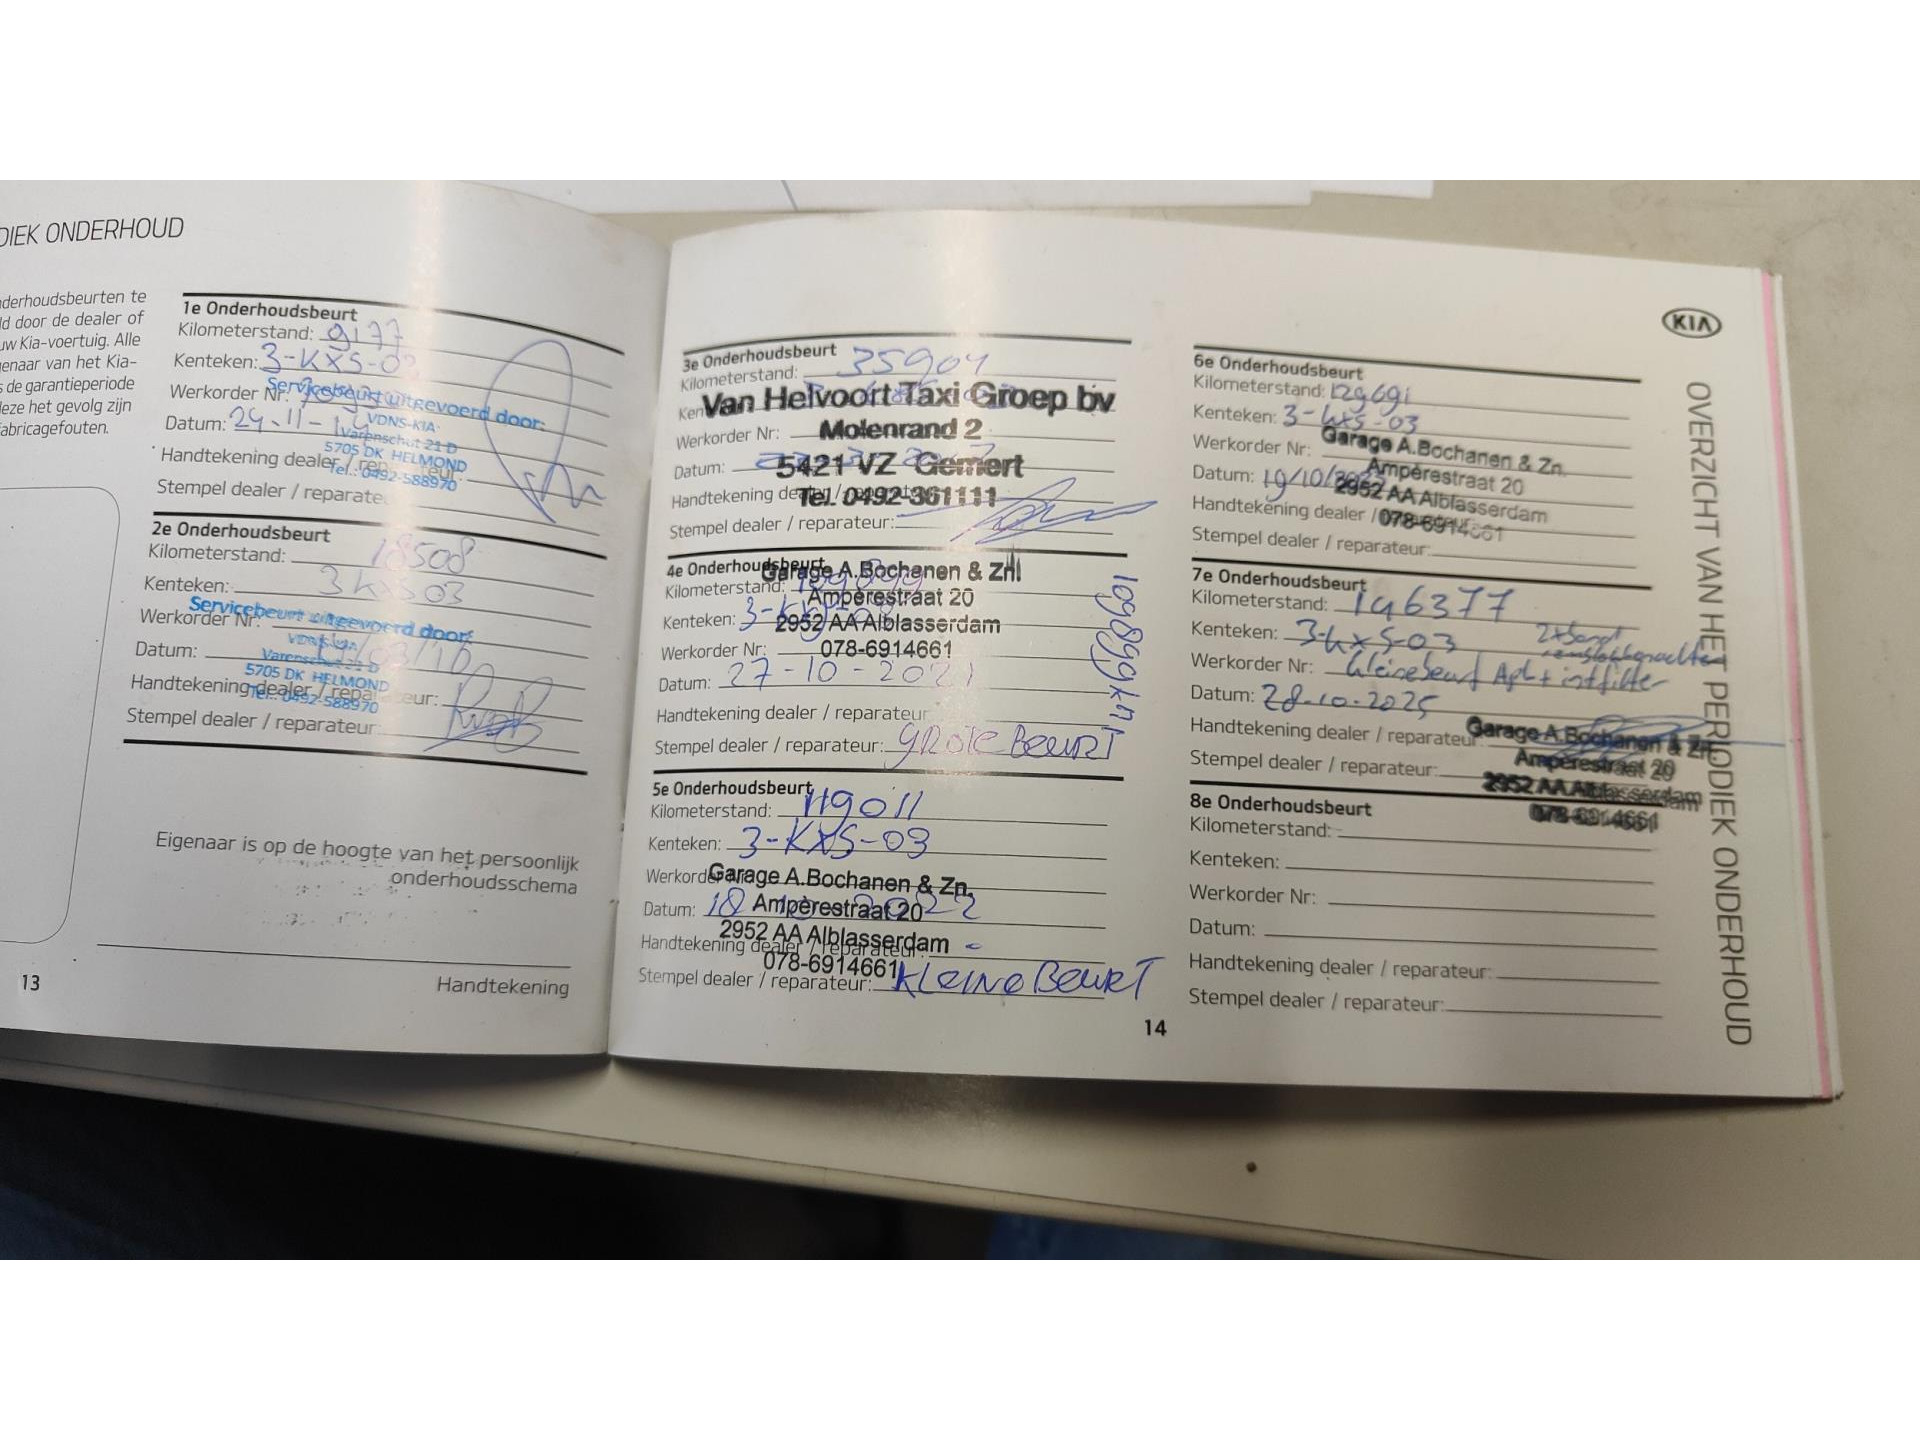 DIEK ONDERHOUD
nderhoudsbeurten te
ld door de dealer of
uw Kia-voertuig. Alle
genaar van het Kia-
s de garantieperiode
deze het gevolg zijn
fabricagefouten.
1e Onderhoudsbeurt
Kilometerstand: 9177
Kenteken: 3-KXS-03
Werkorder Nr:
Servicebeurt uitgevoerd door:
VDNS-KIA
Datum: 24-11-
Varenschut 21 D
5705 DK HELMOND
Handtekening dealer / reparateur:
Tel.: 0492-588970
Stempel dealer / reparate
2e Onderhoudsbeurt
Kilometerstand: 18508
Kenteken: 3KXS03
Servicebeurt uitgevoerd door:
Werkorder Nr:
Varenschut 21 D
Datum:
5705 DK HELMOND
Handtekening dealer / reparateur:
Tel.: 0492-588970
Stempel dealer / reparateur:
Eigenaar is op de hoogte van het persoonlijk
onderhoudsschema
13
Handtekening
3e Onderhoudsbeurt
Kilometerstand: 35904
Ken
Van Helvoort Taxi Groep bv
Werkorder Nr:
Molenrand 2
Datum:
5421 VZ Gemert
Handtekening dealer / reparateur
Tel. 0492-361111
Stempel dealer / reparateur:
4e Onderhoudsbeurt
Garage A.Bochanen & Zn.
Kilometerstand: 109899
Ampèrestraat 20
Kenteken: 3-KXS-03
2952 AA Alblasserdam
Werkorder Nr:
078-6914661
Datum: 27-10-2021
109899km
Handtekening dealer / reparateur
Stempel dealer / reparateur: GROTE BEURT
5e Onderhoudsbeurt
Kilometerstand: 119011
Kenteken: 3-KXS-03
Werkorder
Garage A.Bochanen & Zn.
Datum: 18 2022
Ampèrestraat 20
2952 AA Alblasserdam
Handtekening dealer / reparateur:
078-6914661
Stempel dealer / reparateur: KLEINE BEURT
14
6e Onderhoudsbeurt
Kilometerstand: 129691
Kenteken: 3-KXS-03
Garage A.Bochanen & Zn.
Werkorder Nr:
Ampèrestraat 20
Datum: 19/10/
2952 AA Alblasserdam
Handtekening dealer / reparateur:
078-6914661
Stempel dealer / reparateur:
7e Onderhoudsbeurt
Kilometerstand: 146377
Kenteken: 3-KXS-03
Werkorder Nr: kleine beurt Apk + intfilter
Datum: 28-10-2025
Handtekening dealer / reparateur
Garage A.Bochanen & Zn.
Ampèrestraat 20
Stempel dealer / reparateur:
2952 AA Alblasserdam
078-6914661
8e Onderhoudsbeurt
Kilometerstand:
Kenteken:
Werkorder Nr:
Datum:
Handtekening dealer / reparateur:
Stempel dealer / reparateur:
KIA
OVERZICHT VAN HET PERIODIEK ONDERHOUD